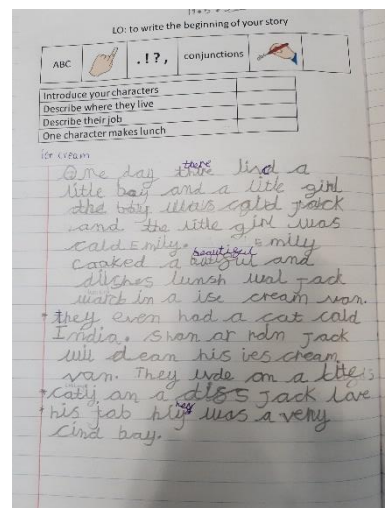 LO: to write the beginning of your story
ABC
. ! ? ,
conjunctions
Introduce your characters
Describe where they live
Describe their job
One character makes lunch
ice cream
One day there livd a
litle boy and a litle girl
the boy was calld jack
and the litle girl was
cald Emily. Emily
cooked a beautiful and
dilshes lunsh wal Jack
in a ise cream van.
they even had a cat cald
India. Jack
wil clean his ies cream
van. They on a
an a Jack love
his job he was a very
cind boy.